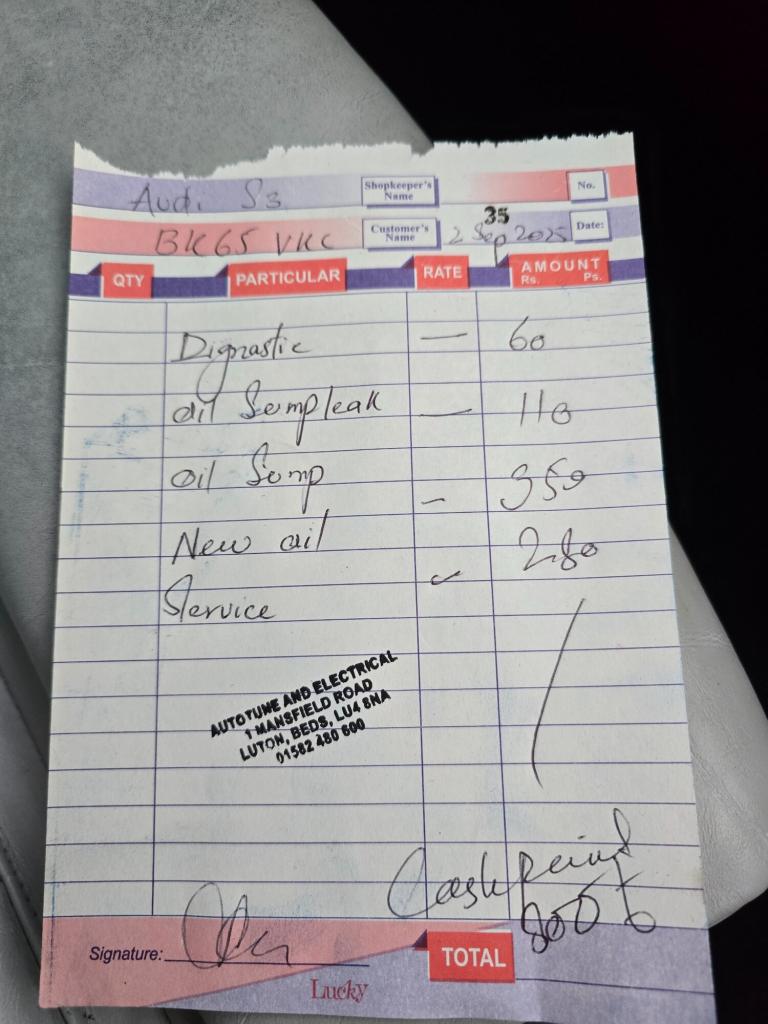 Audi S3 Shopkeeper's Name No.
BK65 VKC Customer's Name 2 Sep 2025 35 Date:
QTY PARTICULAR RATE AMOUNT
Rs. Ps.
Dignastic — 60
oil Sump leak — 110
oil Sump — 350
New oil 280
Service
AUTOTUNE AND ELECTRICAL
1 MANSFIELD ROAD
LUTON, BEDS, LU4 8NA
01582 480 600
Cash
Signature: TOTAL 800
Lucky